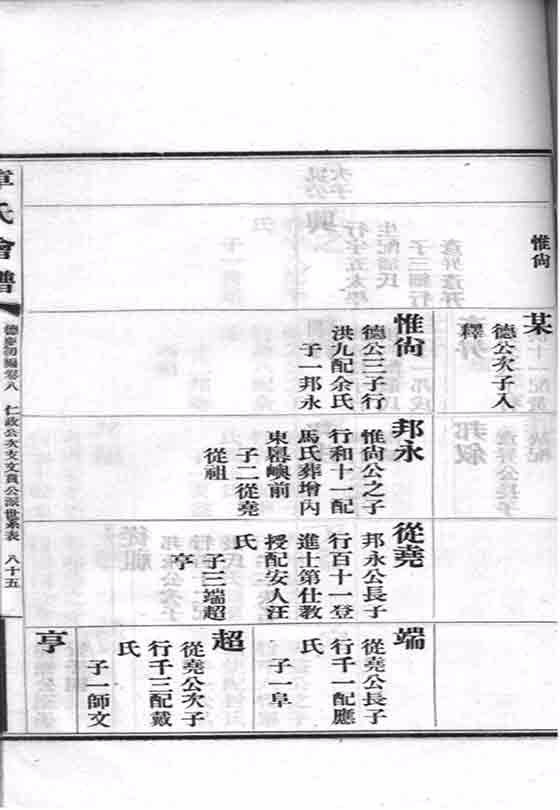 惟尙
某
德公次子入
釋
惟尙
德公三子行
洪九配余氏
子一邦永
邦永
惟尙公之子
行和十一配
馬氏葬增內
東壠嶼前
子二從堯
從祖
從堯
邦永公長子
行百十一登
進士第仕教
授配安人汪
氏
子三端超
亨
端
從堯公長子
行千一配應
氏
子一阜
超
從堯公次子
行千三配戴
氏
子一師文
亨
章氏會譜
德慶初編卷八
仁政公次支文貢公派世系表
八十五